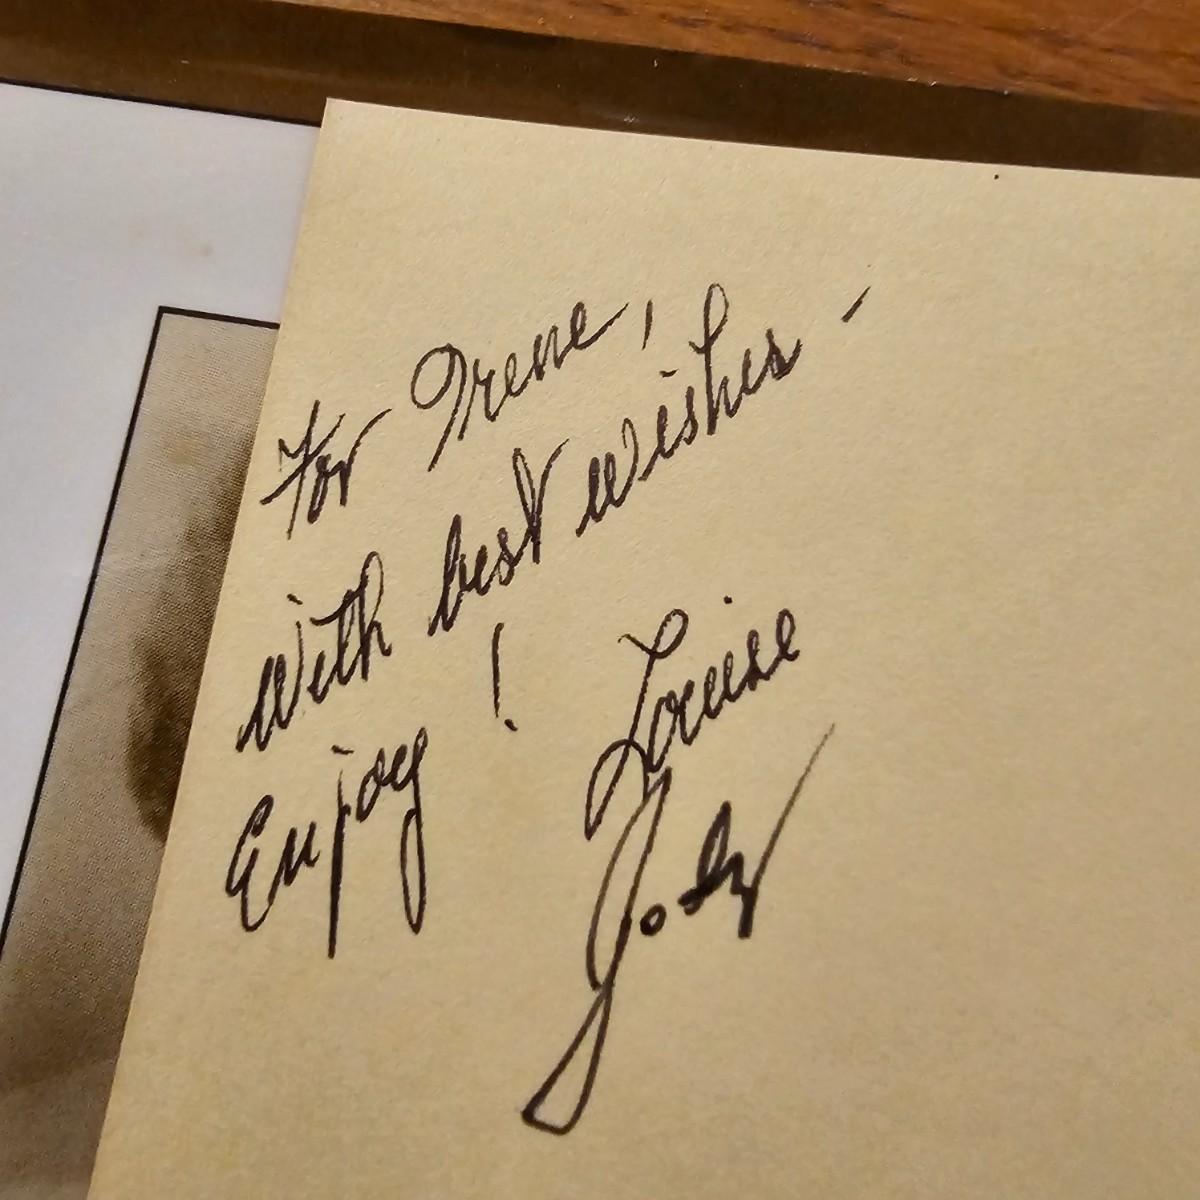 For Irene,
with best wishes -
Enjoy!
Louise
Jody